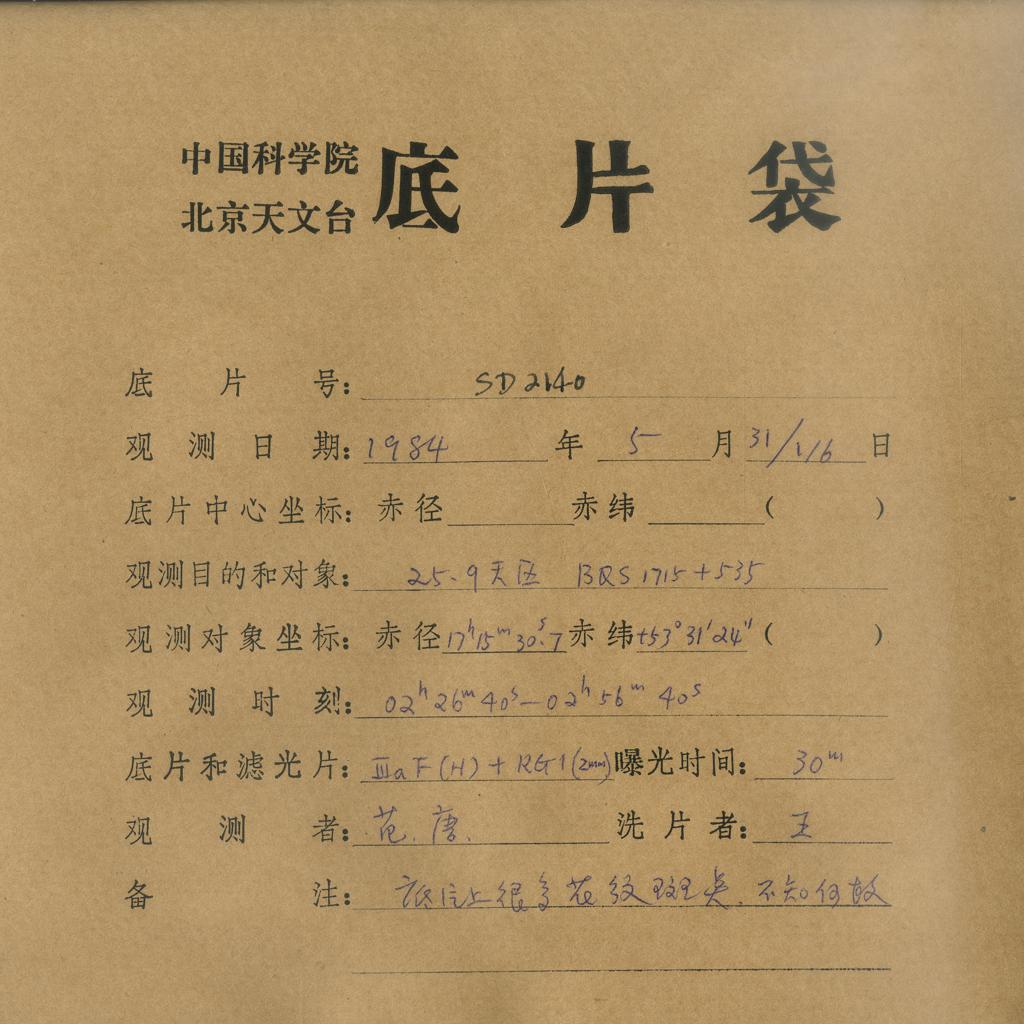 中国科学院
北京天文台
底片袋
底片号: SD2140
观测日期: 1984 年 5 月 31/1/6 日
底片中心坐标: 赤径 赤纬 ( )
观测目的和对象: 25.9天区 BQS 1715+535
观测对象坐标: 赤径 17ʰ15ᵐ30ˢ.7 赤纬 +53°31′24″ ( )
观测时刻: 02ʰ26ᵐ40ˢ—02ʰ56ᵐ40ˢ
底片和滤光片: ⅢaF(H)+RG1(2mm) 曝光时间: 30ᵐ
观测者: 范.唐. 洗片者: 王
备注: 底片上很多花纹斑点.不知何故